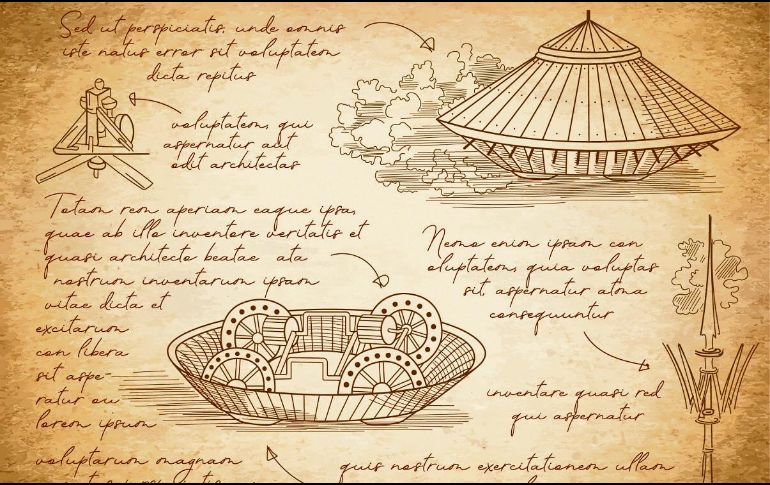 Sed ut perspiciatis, unde omnis
iste natus error sit voluptatem
dicta repitus
voluptatem, qui
aspernatur aut
odit architectas
Totam rem aperiam eaque ipsa,
quae ab illo inventore veritatis et
quasi architecto beatae ata
nostrum inventarum ipsam
vitae dicta et
excitarum
con libera
sit aspe-
ratur ou
lorem ipsum
voluptarum magnam
Nemo enim ipsam con
oluptatem, quia voluptas
sit, aspernatur atma
consequuntur
inventare quasi red
qui aspernatur
quis nostrum exercitationem ullam